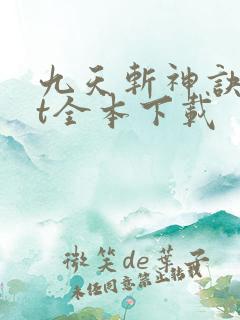 九天斬神訣
t全本下載
微笑de葉子
未经同意禁止转载